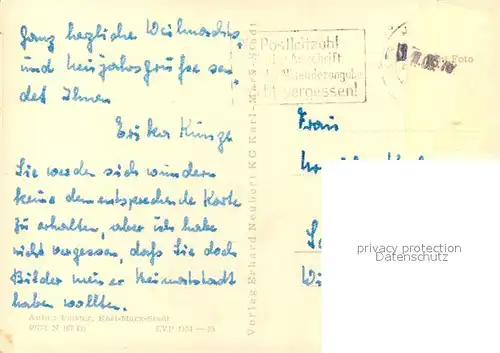 Ganz herzliche Weihnachts-
und Neujahrsgrüsse sen-
det Ihnen
Erika Kunze
Sie werden sich wundern
keine dementsprechende Karte
zu erhalten, aber ich habe
nicht vergessen, dass Sie doch
Bilder meiner Heimatstadt
haben wollten.
Postleitzahl
Anschrift
Absenderangabe
vergessen!
Foto
Frau
Verlag Erhard Neubert KG Karl-Marx-Stadt
privacy protection
Datenschutz
Karl-Marx-Stadt